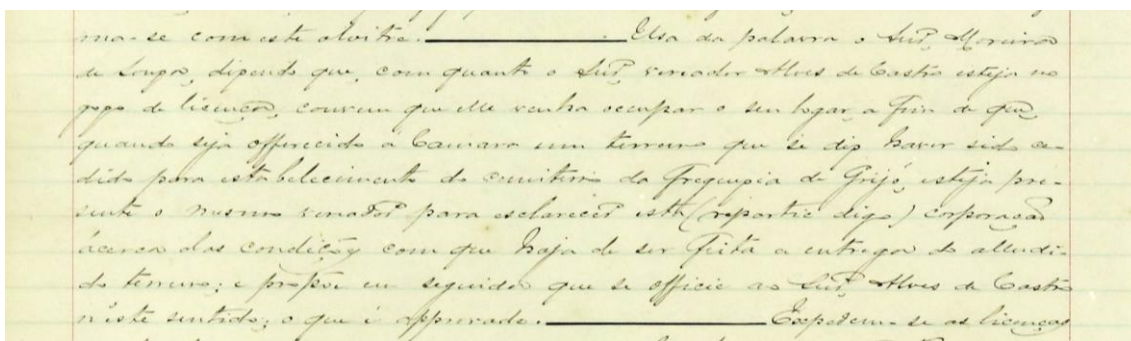 ma-se com este alvitre. ———— Usa da palavra o Snr. Moreira
de Souza, dizendo que, com quanto o Snr. vereador Alves de Castro esteja no
gozo de licença, convem que elle venha occupar o seu logar, a fim de que,
quando seja offerecido á Camara um terreno que se diz haver sido ce-
dido para estabelecimento do cemiterio da freguezia de Grijó, esteja pre-
sente o mesmo vereador para esclarecer esta (repartiç digo) corporação
ácerca das condições com que haja de ser feita a entrega do alludi-
do terreno; e propõe em seguida que se officie ao Snr. Alves de Castro
n'este sentido; o que é approvado. ———— Expedem-se as licenças